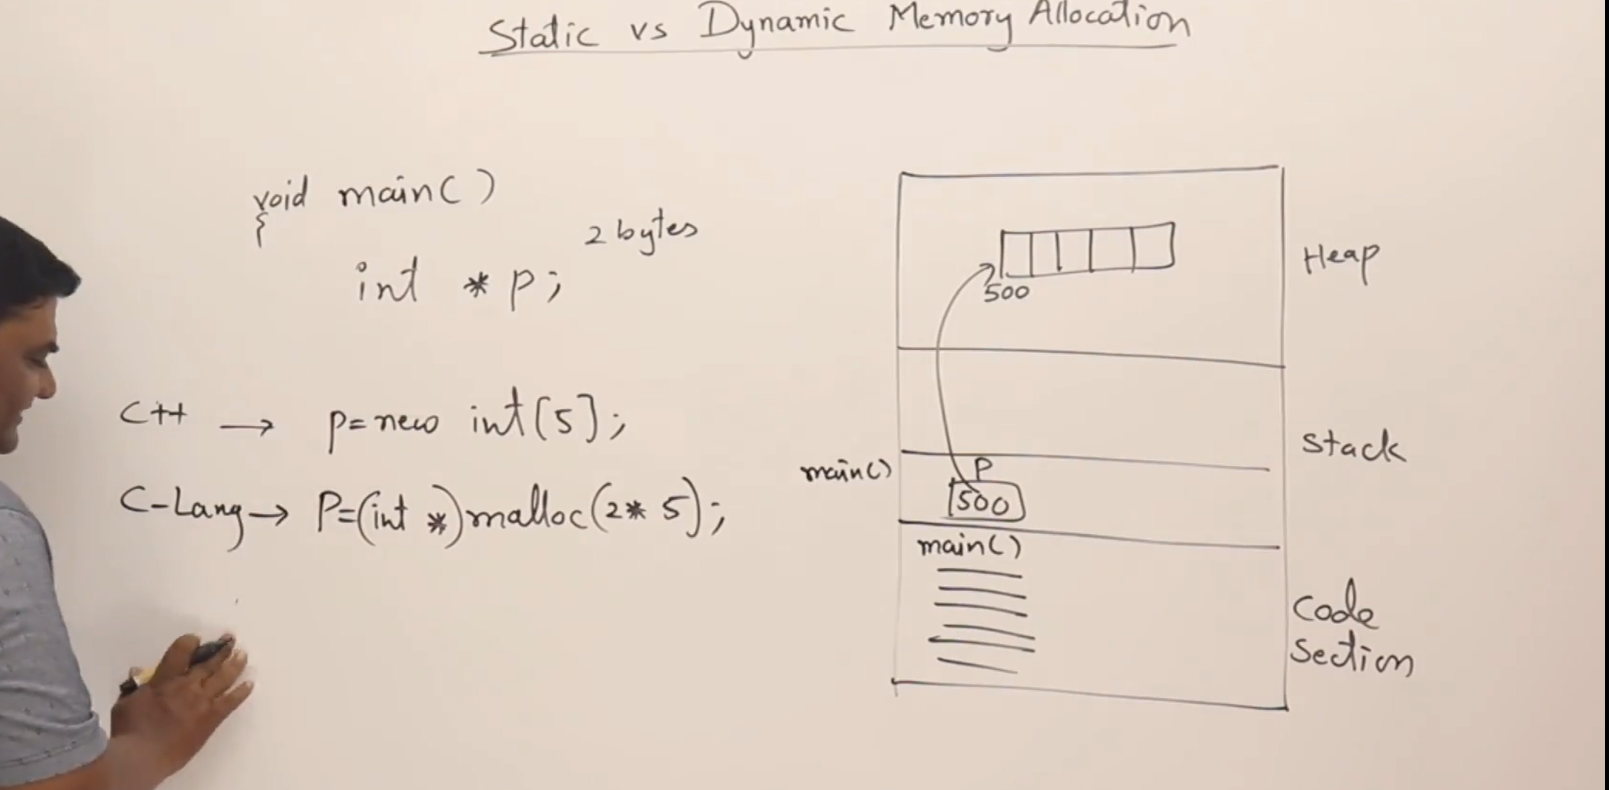 Static vs Dynamic Memory Allocation
void main()
{
2 bytes
int * p;
C++ → p=new int[5];
C-Lang→ P=(int *)malloc(2* 5);
500
Heap
Stack
main()
P
500
main()
Code
Section